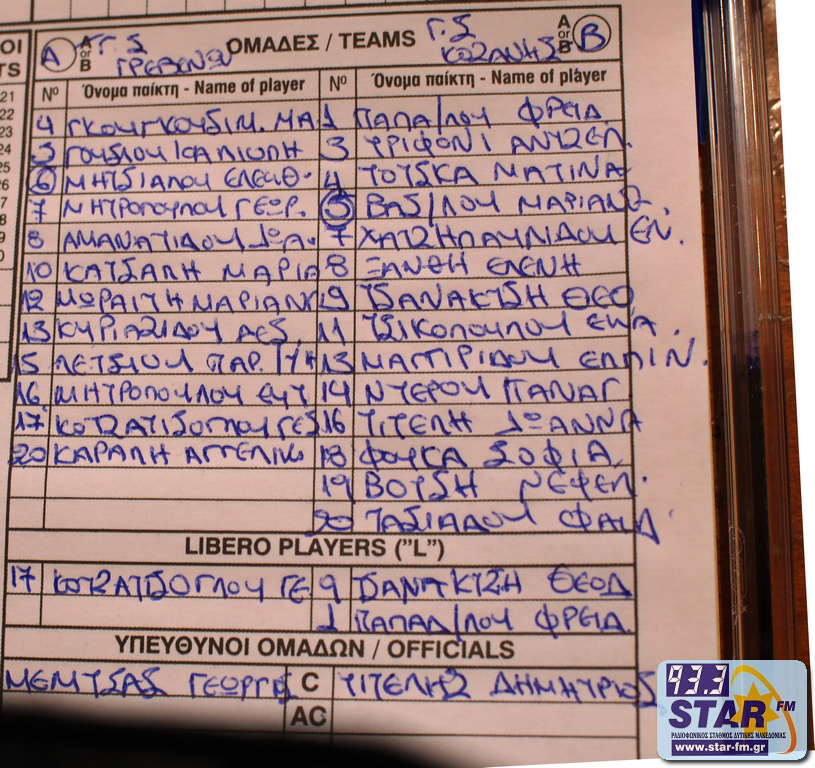 ΟΙ
TS
21
22
23
24
25
26
7
8
9
0
A A or B Γ.Σ ΓΡΕΒΕΝΩΝ ΟΜΑΔΕΣ / TEAMS Γ.Σ ΚΟΖΑΝΗΣ A or B B
Nº Όνομα παίκτη - Name of player Nº Όνομα παίκτη - Name of player
4 ΓΚΟΥΓΚΟΥΔΙΜ. ΜΑ 1 ΠΑΠΑ/ΛΟΥ ΦΡΕΙΔ.
5 ΓΟΥΣΙΟΥ ΚΑΛΙΟΠΗ 3 ΤΡΙΦΟΝΙ ΑΝΤΖΕΛ.
6 ΜΗΤΣΙΑΛΟΥ ΕΛΕΥΘ. 4 ΤΟΥΣΚΑ ΜΑΤΙΝΑ
7 ΜΗΤΡΟΠΟΥΛΟΥ ΓΕΩΡ. 5 ΒΑΣ/ΛΟΥ ΜΑΡΙΑΝΖ.
8 ΑΜΑΝΑΤΙΔΟΥ ΙΩΑ. 7 ΧΑΤΖΗΠΑΥΛΙΔΟΥ ΕΝ.
10 ΚΑΤΣΑΛΗ ΜΑΡΙΑ 8 ΞΑΝΘΗ ΕΛΕΝΗ
12 ΜΩΡΑΙΤΗ ΜΑΡΙΑΝ 9 ΤΣΑΝΑΚΤΣΗ ΘΕΟ
13 ΚΥΡΙΑΖΙΔΟΥ ΔΕΣ. 11 ΤΣΙΚΟΠΟΥΛΟΥ ΕΥΑ.
15 ΛΕΤΣΙΟΥ ΠΑΡ. 13 ΜΑΓΓΙΡΙΔΟΥ ΕΛΠΙΝ.
16 ΜΗΤΡΟΠΟΥΛΟΥ ΕΥΤ 14 ΝΤΕΡΟΥ ΠΑΝΑΓ
17 ΚΟΤΖΑΤΙΖΟΓΛΟΥ ΓΕΣ 16 ΤΙΤΕΛΗ ΙΩΑΝΝΑ
20 ΚΑΡΑΛΗ ΑΓΓΕΛΙΚ 18 ΦΟΥΚΑ ΣΟΦΙΑ
19 ΒΟΥΤΣΗ ΝΕΦΕΛ.
20 ΤΑΣΙΑΔΟΥ ΦΑΙΔ.
LIBERO PLAYERS ("L")
17 ΚΟΤΖΑΤΙΖΟΓΛΟΥ ΓΕ 9 ΤΣΑΝΑΚΤΣΗ ΘΕΟΔ
1 ΠΑΠΑΔ/ΛΟΥ ΦΡΕΙΔ.
ΥΠΕΥΘΥΝΟΙ ΟΜΑΔΩΝ / OFFICIALS
ΜΕΜΤΣΑΣ ΓΕΩΡΓΙΟΣ C ΤΙΤΕΛΗΣ ΔΗΜΗΤΡΙΟΣ
AC
93.3
STAR FM
ΡΑΔΙΟΦΩΝΙΚΟΣ ΣΤΑΘΜΟΣ ΔΥΤΙΚΗΣ ΜΑΚΕΔΟΝΙΑΣ
www.star-fm.gr